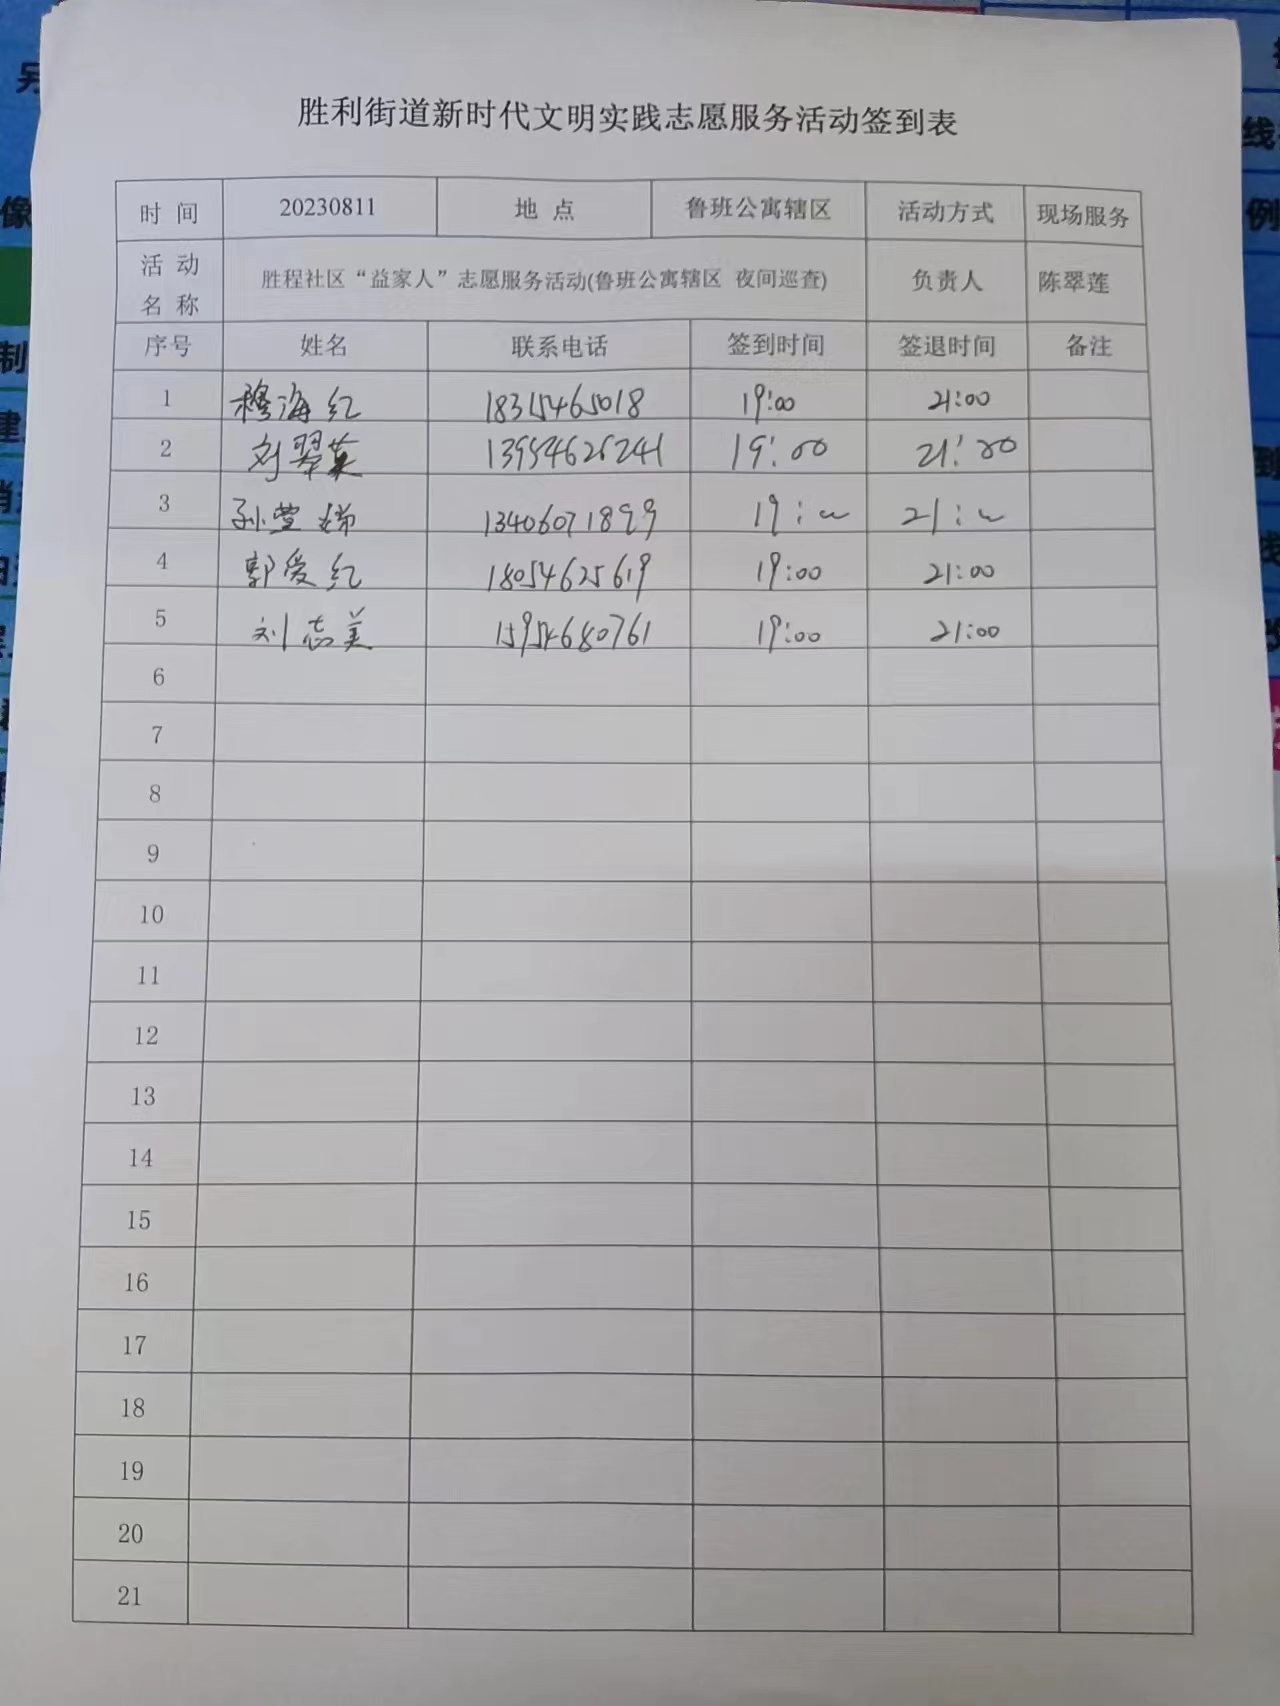 胜利街道新时代文明实践志愿服务活动签到表
时 间 20230811 地 点 鲁班公寓辖区 活动方式 现场服务
活 动 名 称 胜程社区“益家人”志愿服务活动(鲁班公寓辖区 夜间巡查) 负责人 陈翠莲
序号 姓名 联系电话 签到时间 签退时间 备注
1 穆海红 18315465018 19:00 21:00
2 刘翠英 13954626241 19:00 21:00
3 13406071899 19:00 21:00
4 郭爱红 18054625619 19:00 21:00
5 刘志美 15954680761 19:00 21:00
6
7
8
9
10
11
12
13
14
15
16
17
18
19
20
21